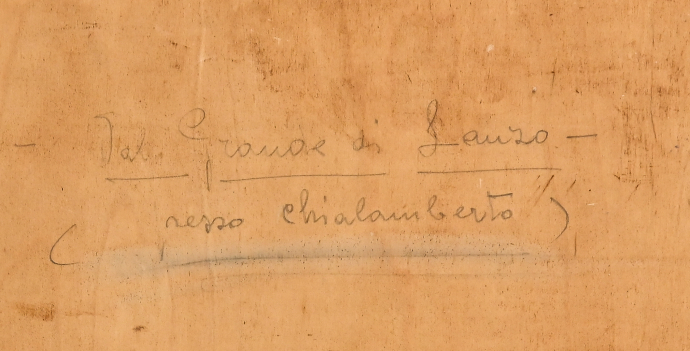 - Val Grande di Lanzo -
(presso Chialamberto)